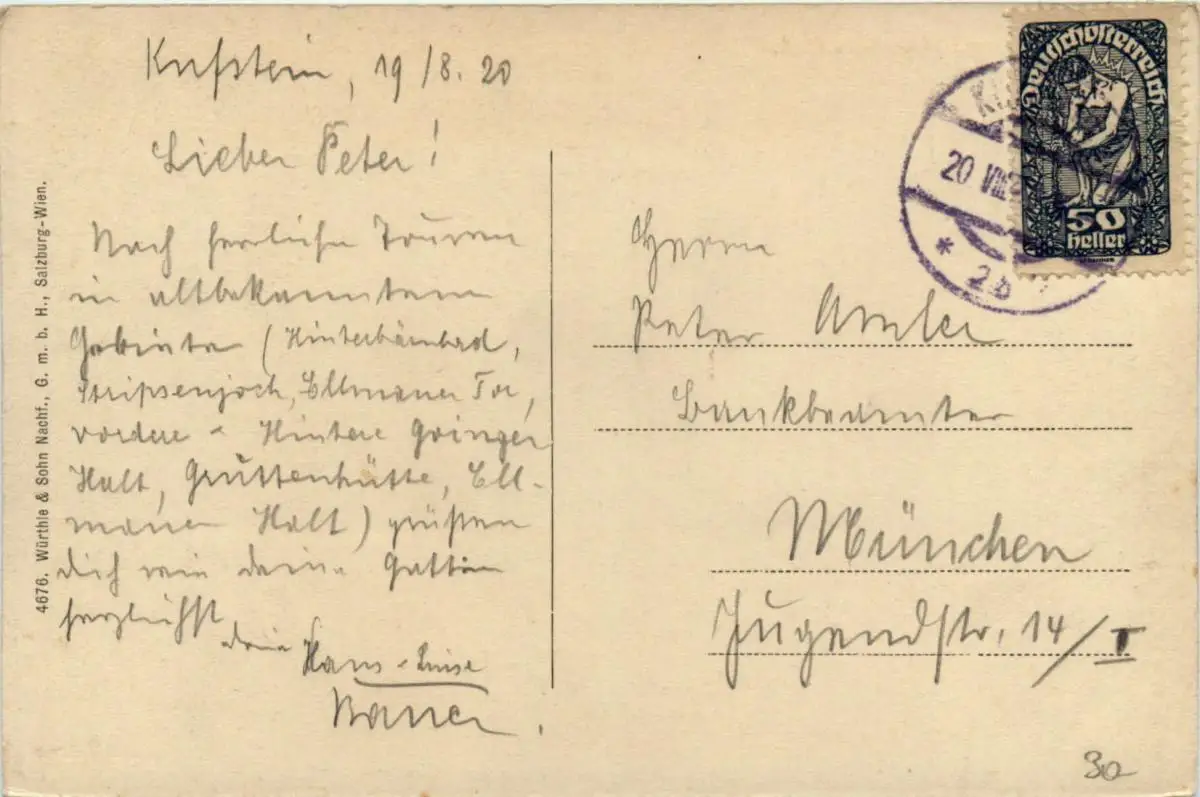 Kufstein, 19/8.20
Lieber Peter!
Nach herrlichen Touren
in altbekanntem
Gebiete (Hinterbärenbad,
Stripsenjoch, Ellmauer Tor,
vordere - Hintere Goinger
Halt, Gruttenhütte, Ell-
mauer Halt) grüßen
dich wie deine Gattin
herzlichst
dein Hans - Luise
Bauer.
4676. Würthle & Sohn Nachf., G. m. b. H., Salzburg-Wien.
Deutschösterreich
50
heller
20 VIII
* 2b
Herrn
Peter
Bankbeamter
München
Jugendstr. 14/I
30